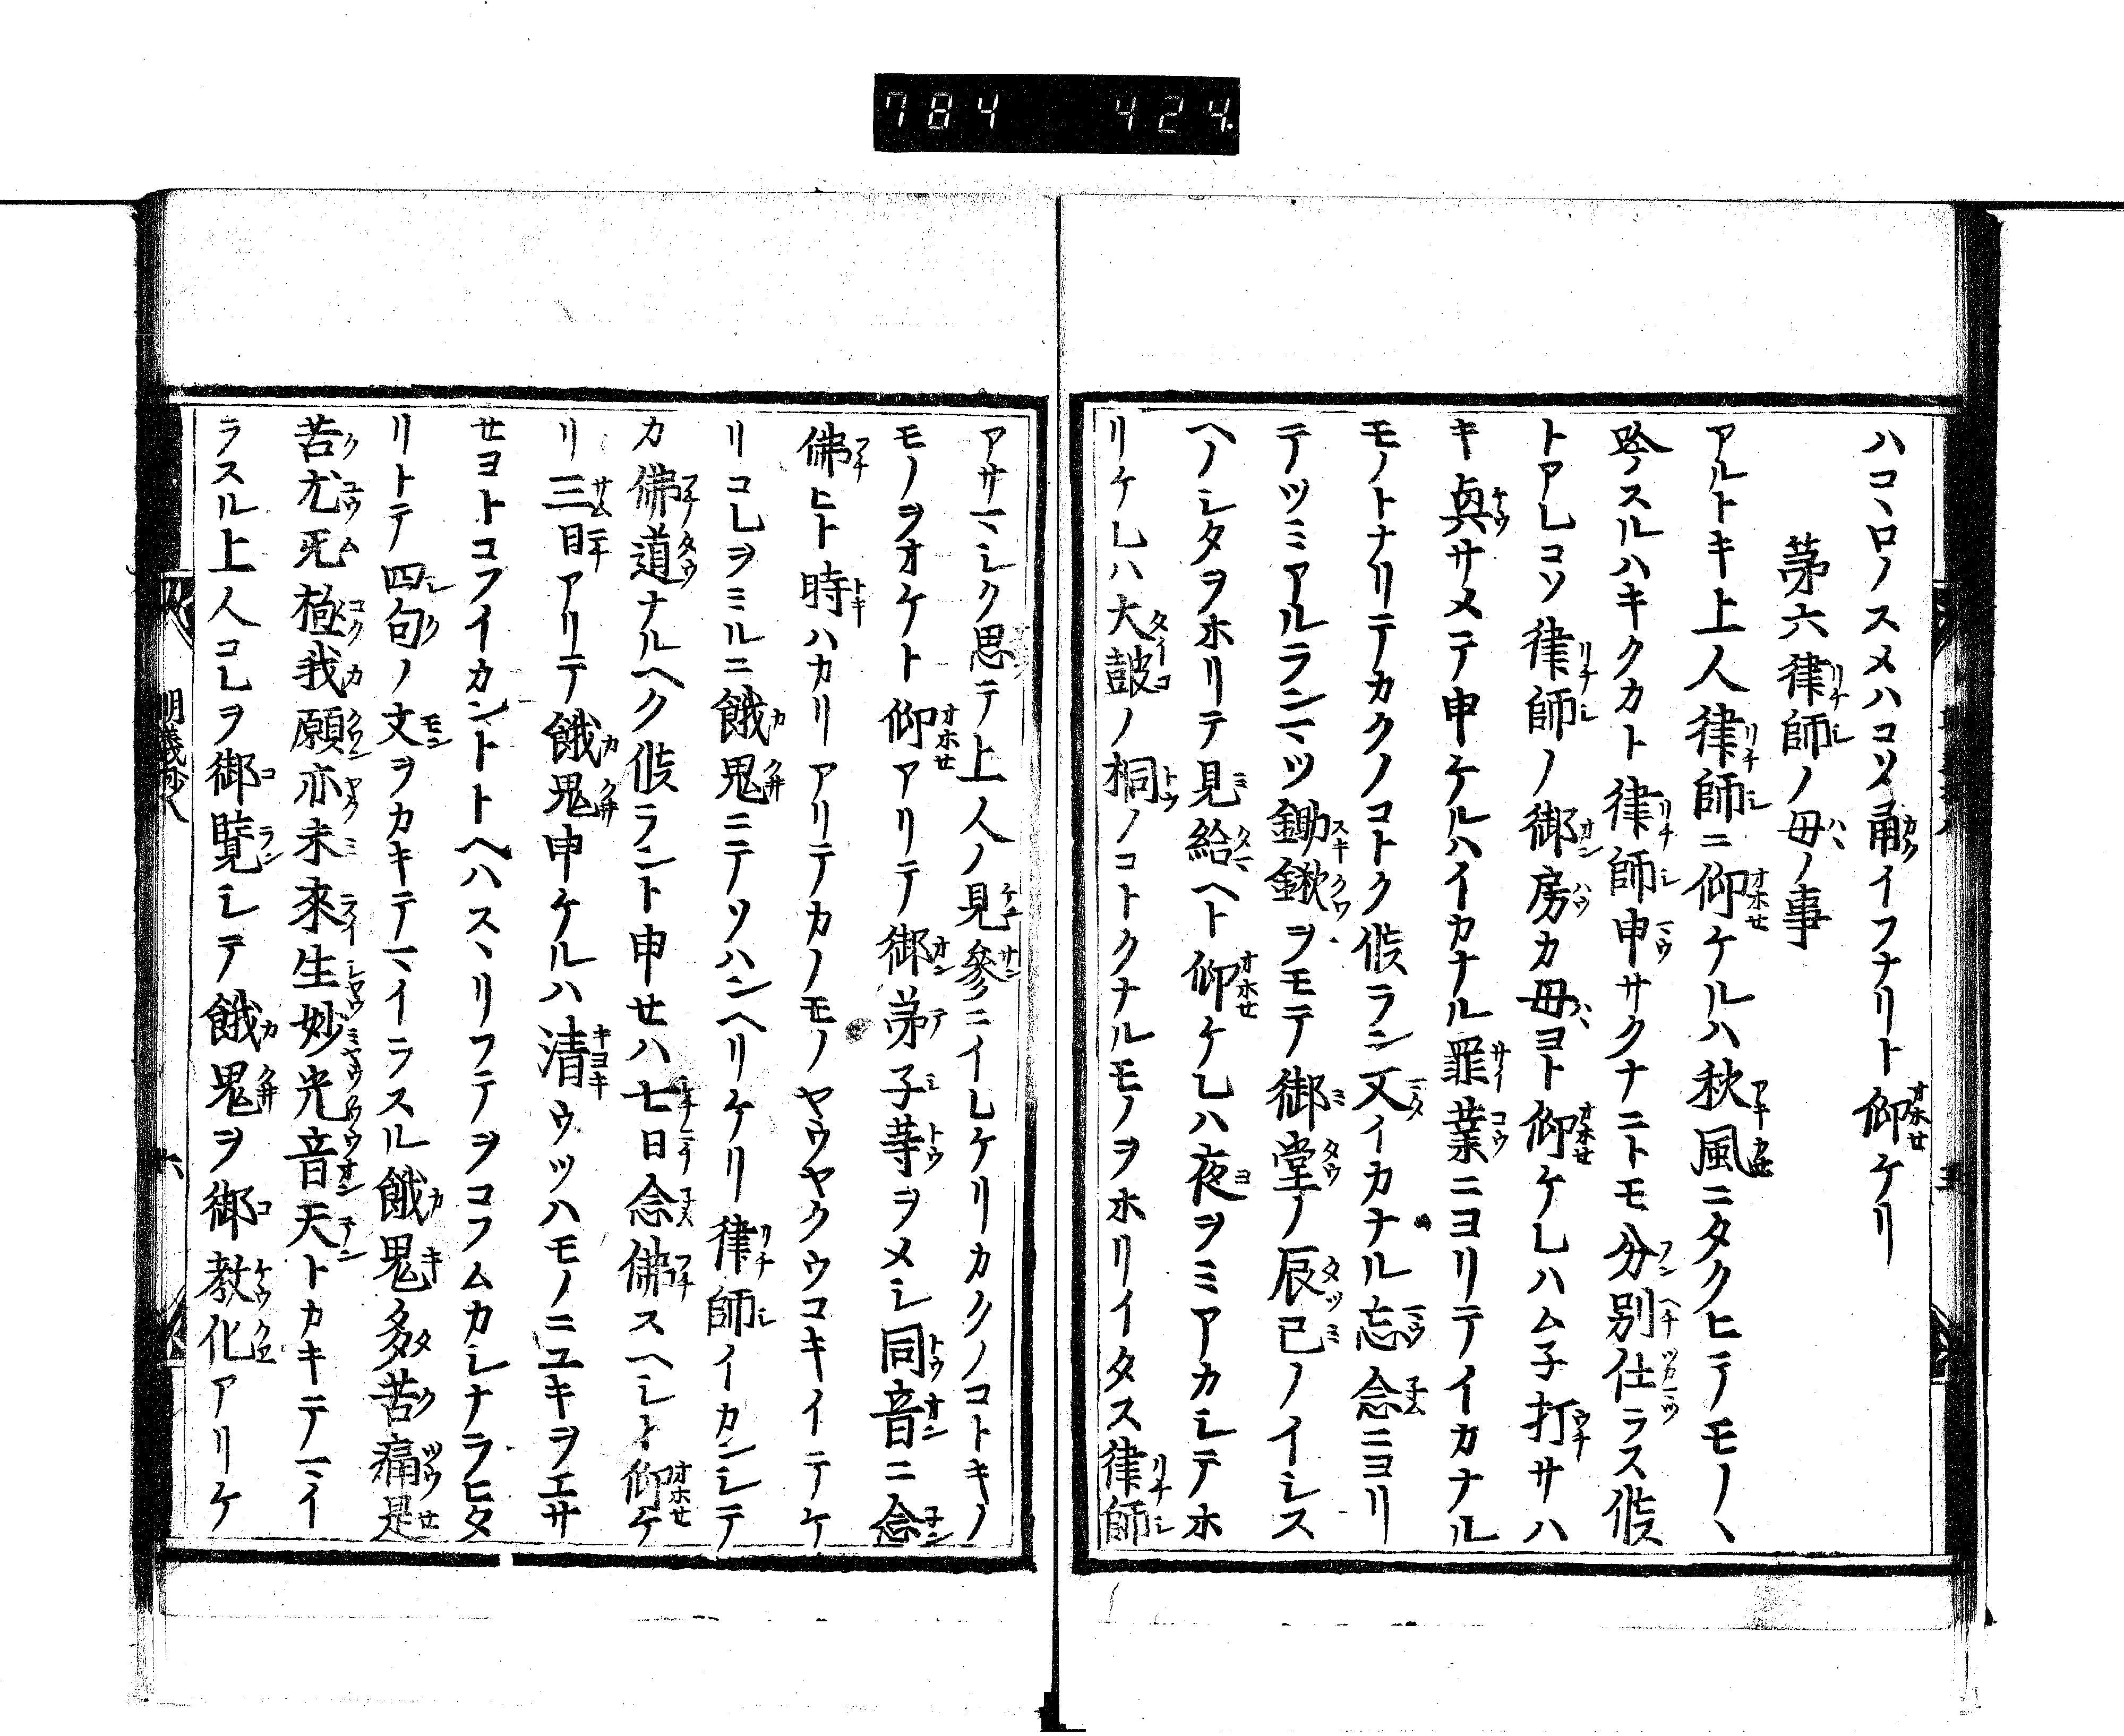 784 424
ハコヽロノスメハコソ角イフナリト仰ケリ
第六律師ノ母ノ事
アルトキ上人律師ニ仰ケルハ秋風ニタクヒテモノヽ
吟スルハキクカト律師申サクナニトモ分別仕ラス候
トアレコソ律師ノ御房カ母ヨト仰ケレハムネ打サハ
キ興サメテ申ケルハイカナル罪業ニヨリテイカナル
モノトナリテカクノコトク候ラン又イカナル忘念ニヨリ
テツミアルランマツ鋤鍬ヲモテ御堂ノ辰巳ノイシス
ヘノシタヲホリテ見給ヘト仰ケレハ夜ヲミアカシテホ
リケレハ大鼓ノ桐ノコトクナルモノヲホリイタス律師
アサマシク思テ上人ノ見参ニイレケリカクノコトキノ
モノヲオケト仰アリテ御弟子等ヲメシ同音ニ念
佛ヒト時ハカリアリテカノモノヤウヤクウコキイテケ
リコレヲミルニ餓鬼ニテソハンヘリケリ律師イカンシテ
カ佛道ナルヘク候ラント申セハ七日念佛スヘシト仰ケ
リ三日アリテ餓鬼申ケルハ清ウツハモノニユキヲエサ
セヨトコフイカントトヘハスヽリフテヲコフムカシナラヒタ
リトテ四句ノ文ヲカキテマイラスル餓鬼多苦痛是
苦尤死極我願亦未來生妙光音天トカキテマイ
ラスル上人コレヲ御覧シテ餓鬼ヲ御教化アリケ
明義抄八
六